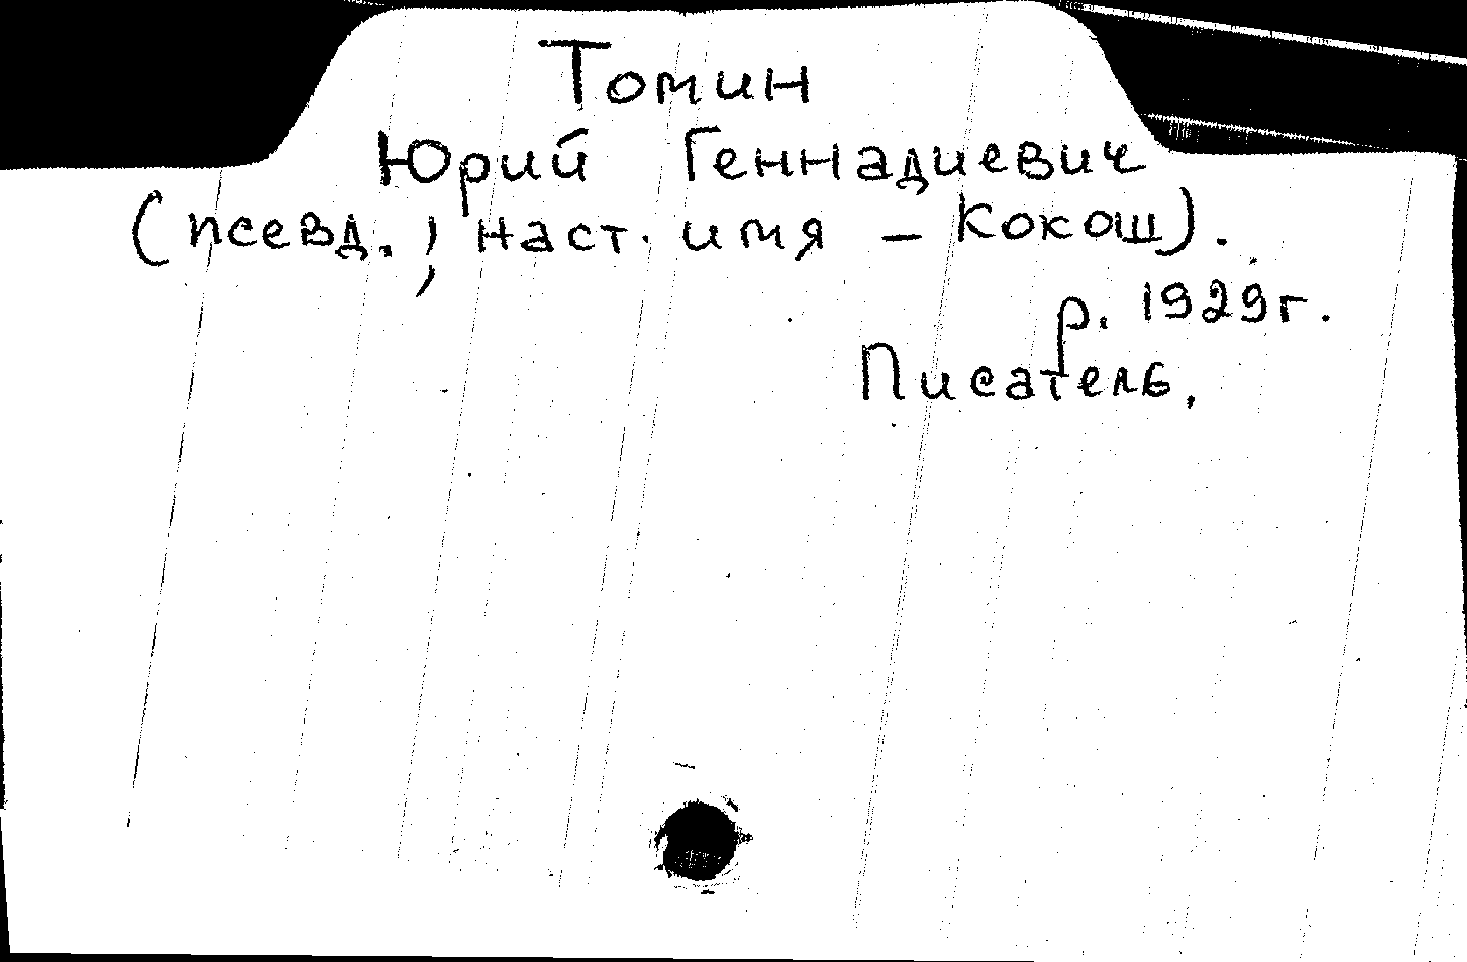 Томин
Юрий Геннадиевич
(псевд.; наст. имя – Кокош).
р. 1929г.
Писатель.